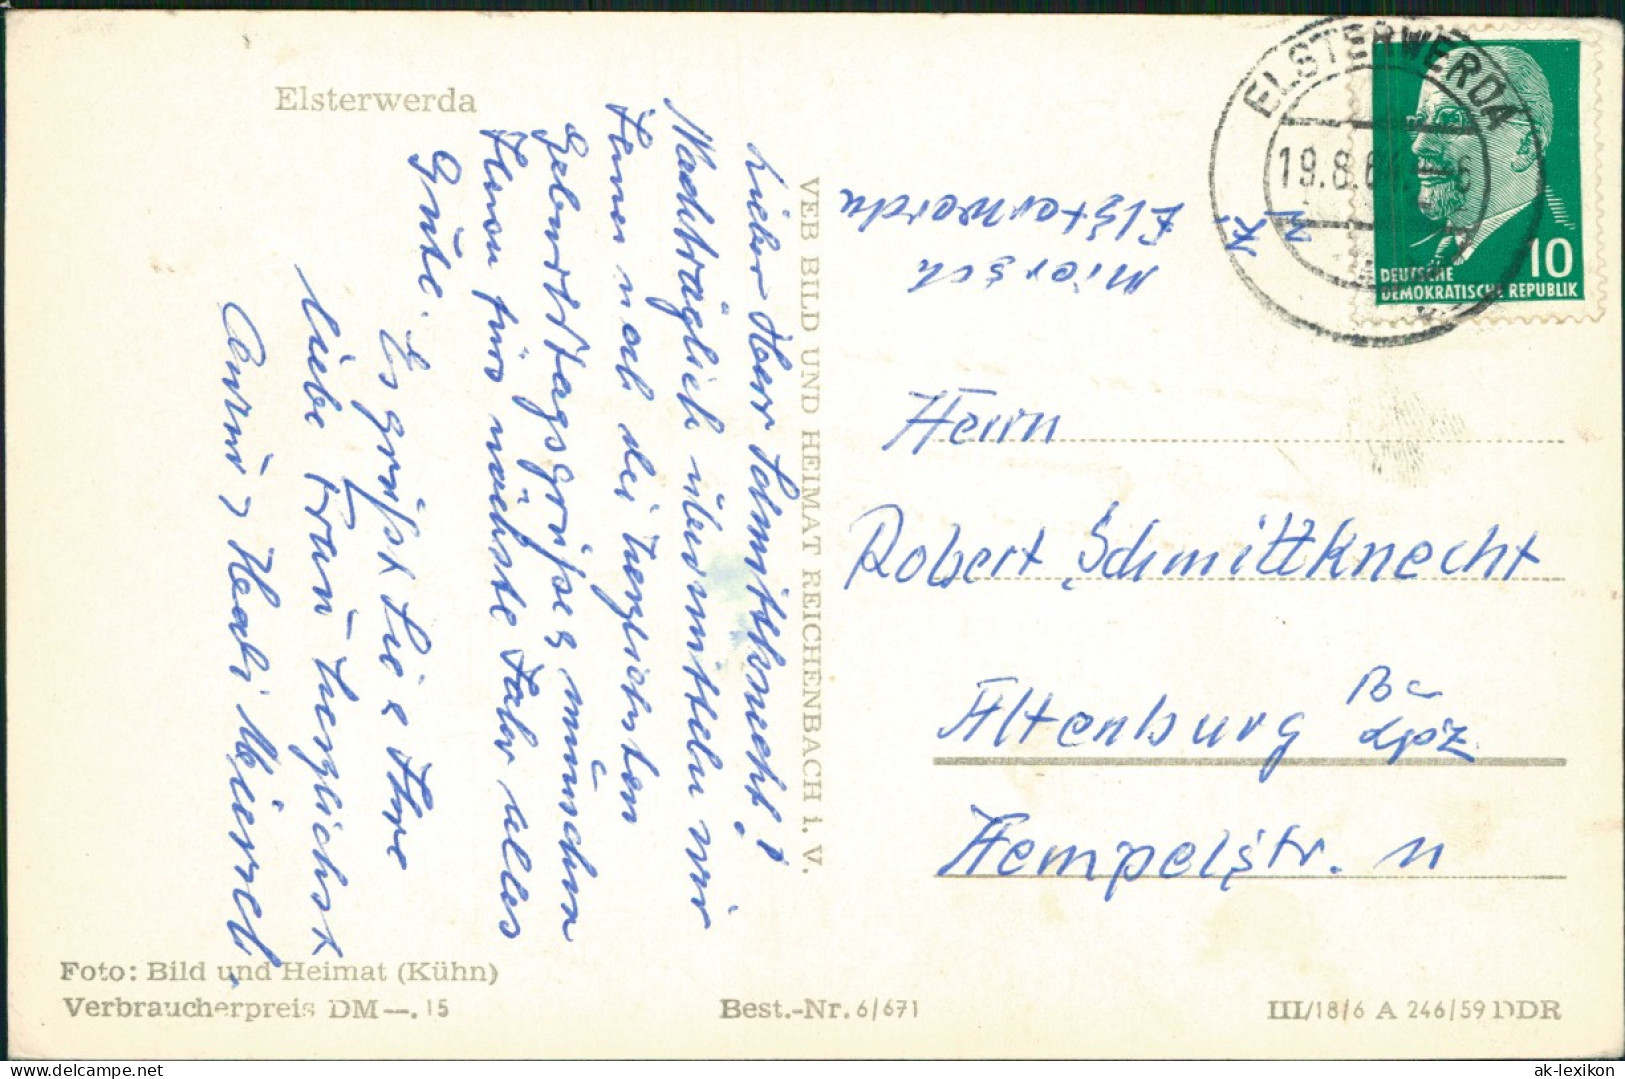 Elsterwerda
Lieber Herr Schmittknecht!
Nachträglich übermitteln wir
Ihnen noch die herzlichsten
Geburtstagsgrüße & wünschen
Ihnen fürs nächste Jahr alles
Gute.
Es grüßt Sie & Ihre
liebe Frau herzlichst
Miersch
VEB BILD UND HEIMAT REICHENBACH i. V.
Miersch
Elsterwerda
ELSTERWERDA
19.8.61
10
DEUTSCHE
DEMOKRATISCHE REPUBLIK
Herrn
Robert Schmittknecht
Altenburg Bz
Lpz
Hempelstr. 11
Foto: Bild und Heimat (Kühn)
Verbraucherpreis DM —.15
Best.-Nr. 6/671
III/18/6 A 246/59 DDR
www.delcampe.net
ak-lexikon